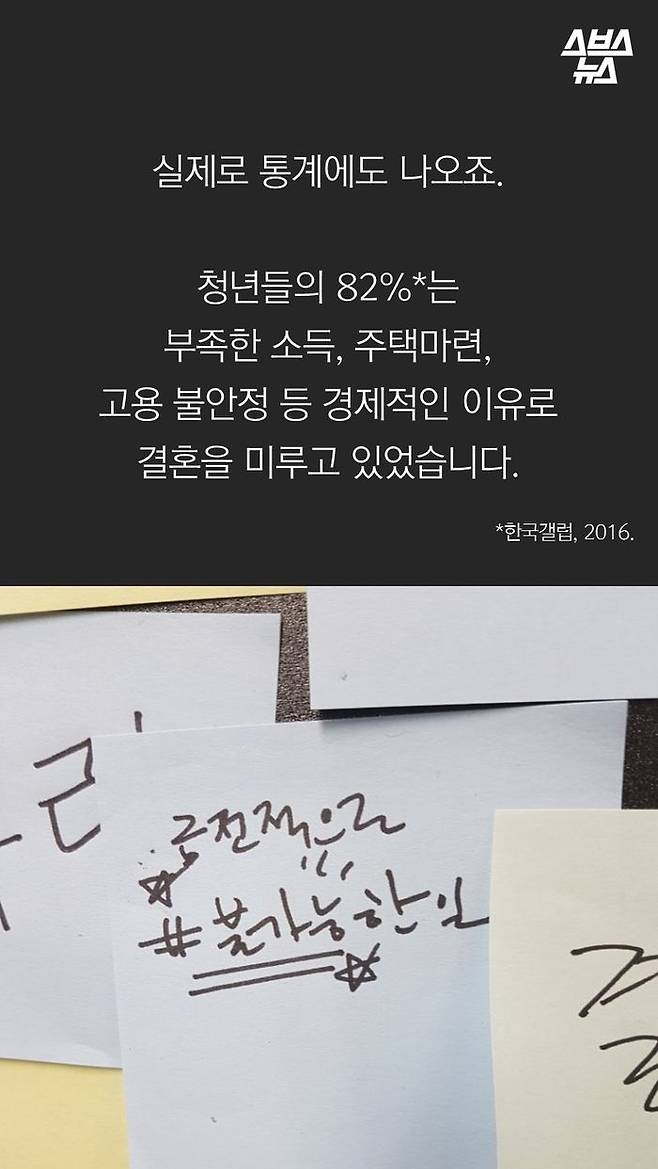 스브스
뉴스
실제로 통계에도 나오죠.
청년들의 82%*는
부족한 소득, 주택마련,
고용 불안정 등 경제적인 이유로
결혼을 미루고 있었습니다.
*한국갤럽, 2016.
금전적으로
#불가능한 일